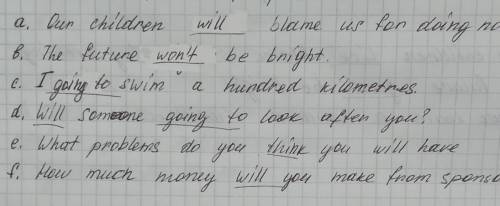 a. Our children will blame us for doing
b. The future won't be bright.
c. I going to swim " a hundred kilometres.
d. Will someone going to look after you?
e. What problems do you think you will have
f. How much money will you make from